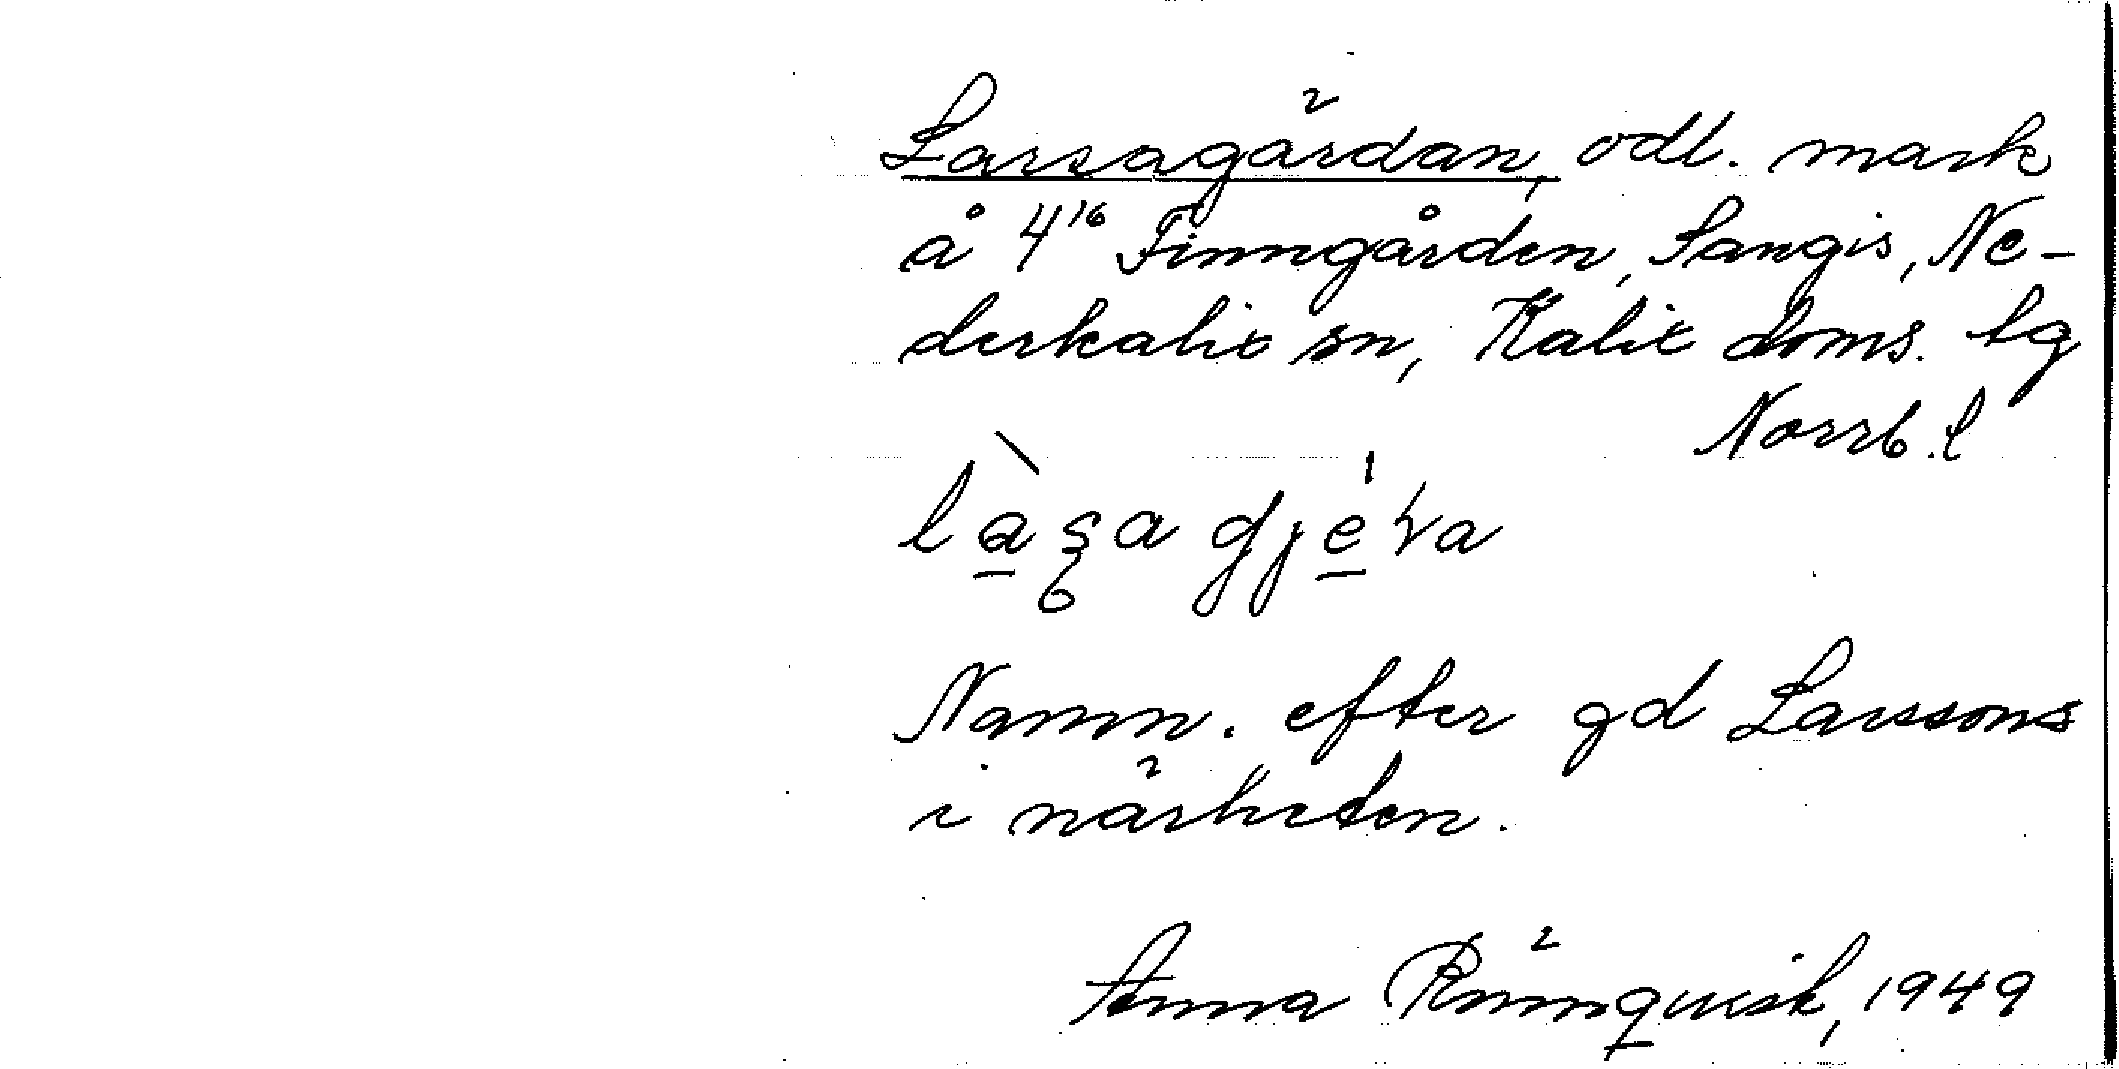 Larsagärdan, odl. mark
å 4¹⁶ Finngården, Sangis, Ne-
derkalix sn, Kalix doms. lg
Norrb. l
Namn. efter gd Larssons
i närheten.
Anna Rönnqvist, 1949